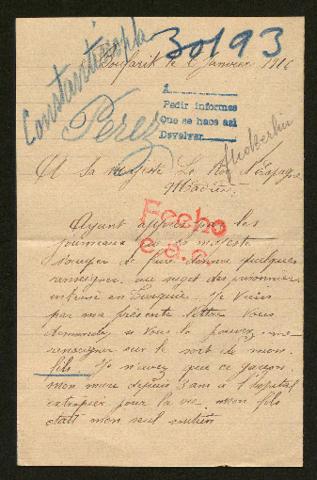 Constantinopla
30193
Boufarik le 6 Janvier 1916
Perez
á
Pedir informes
Que se hace asi
Devolver
A Sa Majesté Le Roi d'Espagne
Madrid
Fecho
Ayant appris par les
journaux que sa majesté
de faire donner quelques
renseigner. au sujet des prisonniers
interné en Turquie. Je viens
par ma présente lettre vous
demander si vous la pouvez me
renseigner sur le sort de mon
fils. Je n'avez que ce garçon,
mon mari depuis 3 ans à l'hopital
estropier pour la vie. mon fils
était mon seul soutien